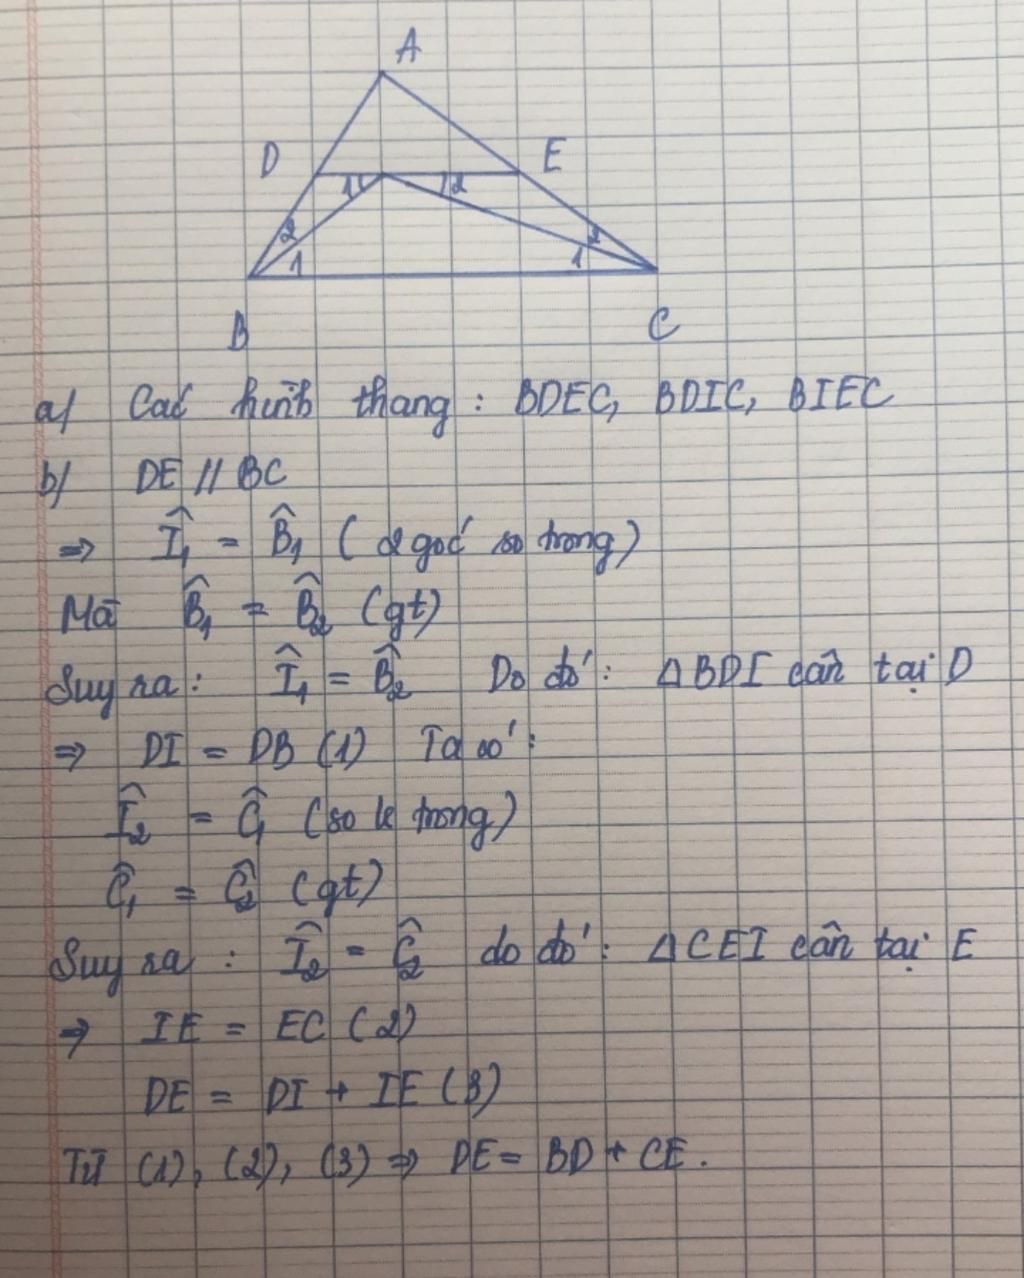 A
D
E
1
2
2
2
1
1
B
C
a/ Các hình thang: BDEC, BDIC, BIEC
b/ DE // BC
⇒ Î₁ = B̂₁ (2 góc so trong)
Mà B̂₁ = B̂₂ (gt)
Suy ra: Î₁ = B̂₂ Do đó: ΔBDI cân tại D
⇒ DI = DB (1) Ta có:
Î₂ = Ĉ₁ (so le trong)
Ĉ₁ = Ĉ₂ (gt)
Suy ra: Î₂ = Ĉ₂ do đó: ΔCEI cân tại E
⇒ IE = EC (2)
DE = DI + IE (3)
Từ (1), (2), (3) ⇒ DE = BD + CE.